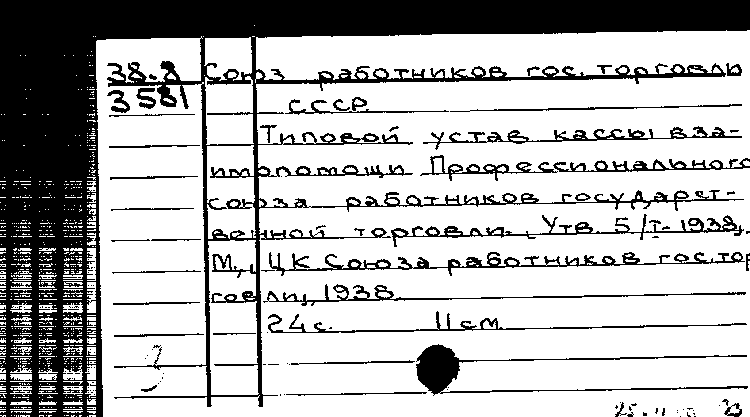 38-8 Союз работников гос. торговли
3581 СССР
Типовой устав кассы вза-
имопомощи Профессионального
союза работников государст-
венной торговли. Утв. 5/I-1938,
М., ЦК Союза работников гос. тор
говли, 1938.
24 с. 11 см.
3